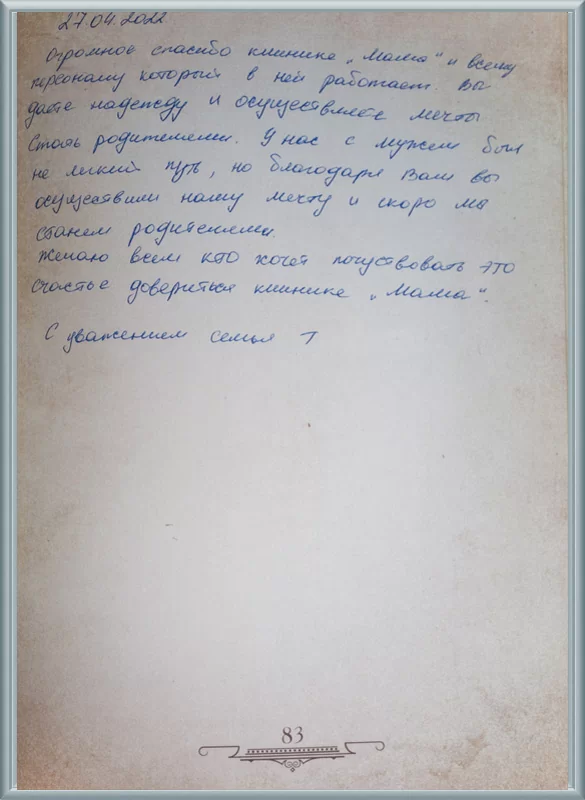 27.04.2022
огромное спасибо клинике „Мама" и всему
персоналу который в ней работает. Вы
даете надежду и осуществляете мечты
Стать родителями. У нас с мужем был
не легкий путь, но благодаря Вам вы
осуществили нашу мечту и скоро мы
станем родителями.
Желаю всем кто хочет почуствовать это
счастье довериться клинике „Мама".
С уважением семья Т
83